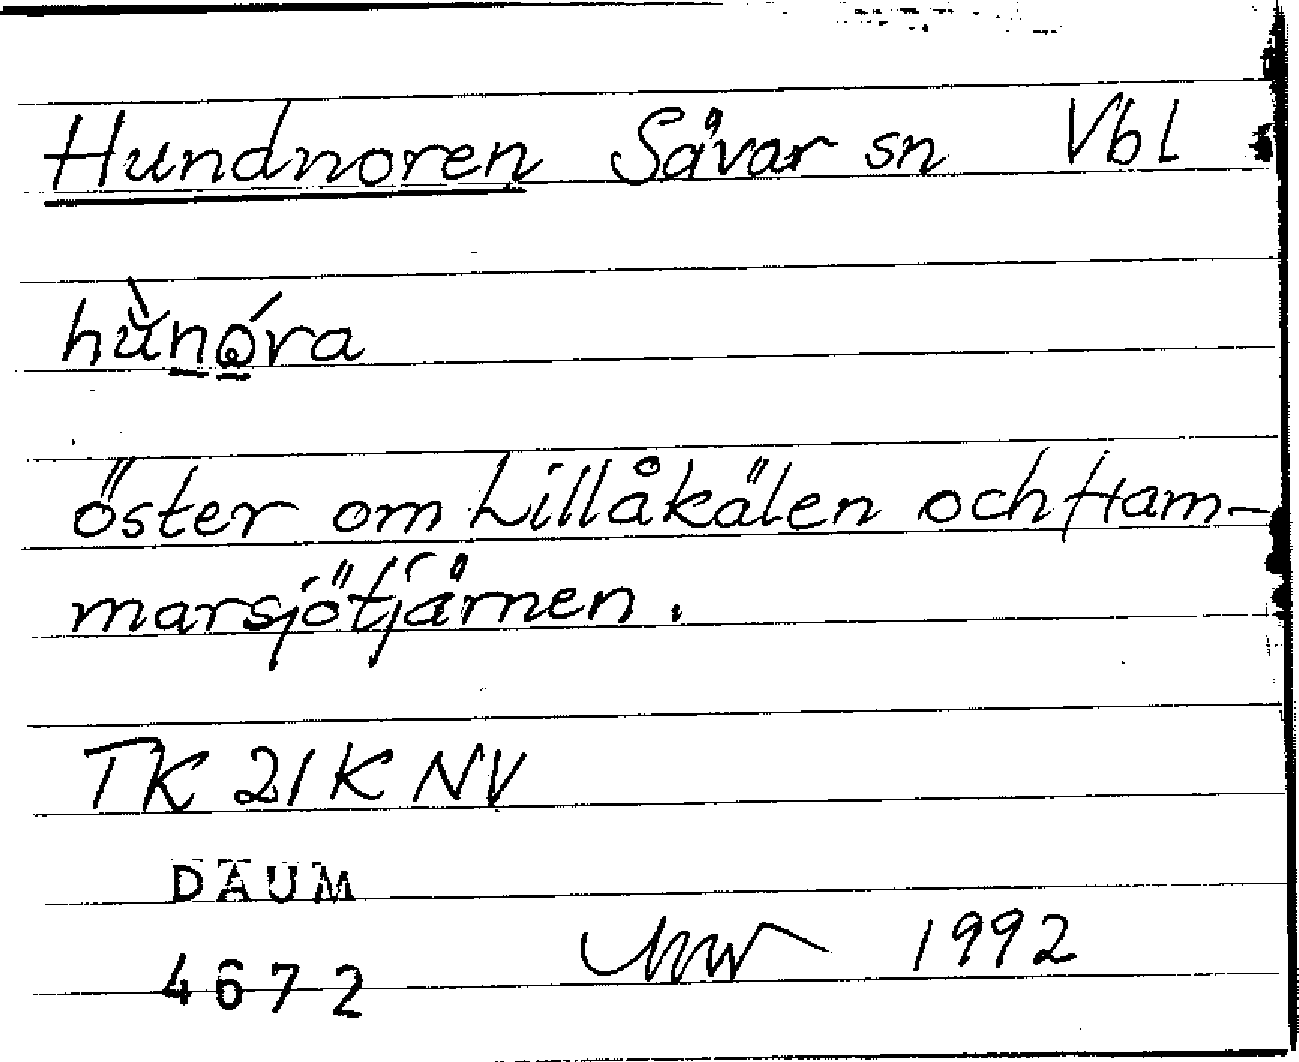 Hundnoren Sävar sn Vbl
hùnóra
öster om Lillåkälen och Ham-
marsjötjärnen.
TK 21K NV
DAUM
1992
4672